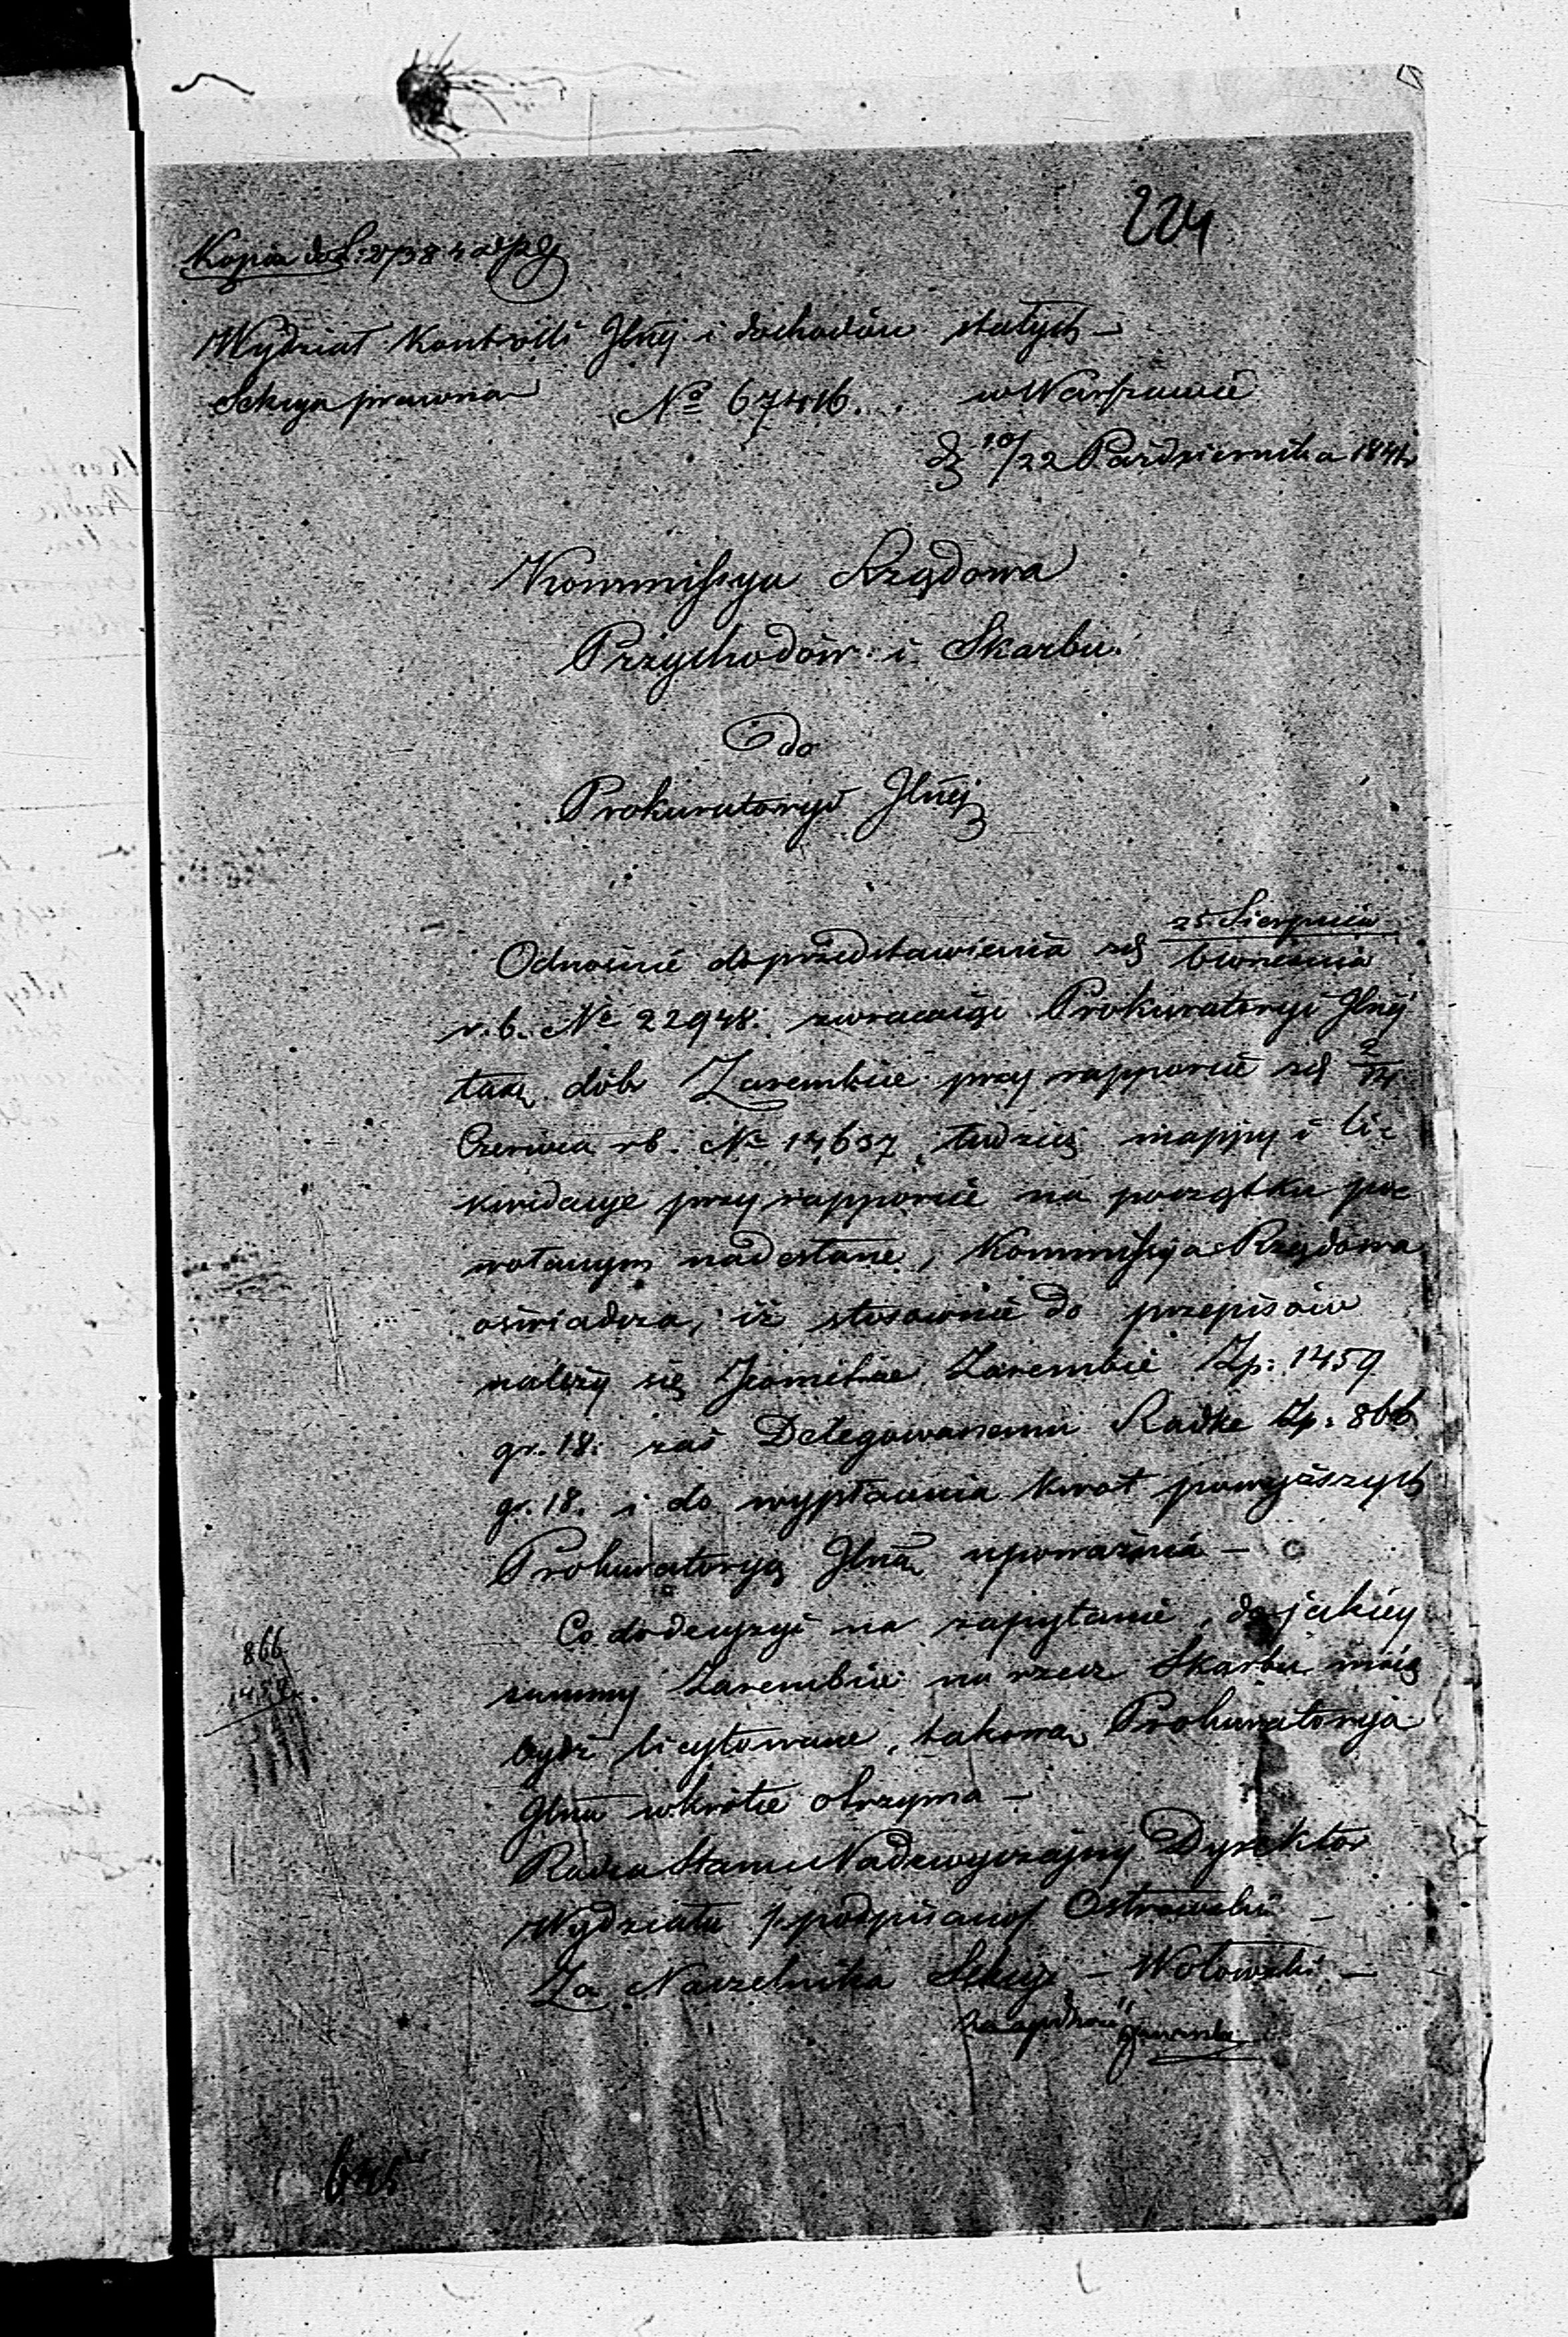 224
Kopia do L:
Wydział Kontrolli Jlnéj i dochodów stałych —
Sekcya prawna № 67416. w Warszawie
d. 10/22 Października 184
Kommissya Rządowa
Przychodów i Skarbu.
do
Prokuratoryi Jlnéj
25 Sierpnia
Odnośnie do przedstawienia z d. 6 Września
r. b. № 22948. zwracając Prokuratoryi Jlnéj
taxę dóbr Zarembice przy rapporcie z d. 2/14
Czerwca rb. № 14637 tudzież mappy i li-
kwidacye przy rapporcie na początku po-
wołanym nadesłane, Kommissya Rządowa
oświadcza, iż stosownie do przepisów
należy się Jeometrze Zarembie Zp: 1459
gr. 18. zaś Delegowanemu Radke Zp: 866
gr. 18. i do wypłacenia kwot powyższych
Prokuratoryą Jlną upoważnia —
Co do decyzyi na zapytanie, do jakiéy
summy Zarembice na rzecz Skarbu mają
bydź licytowane, takową Prokuratorya
Jlna wkrótce otrzyma —
Radca Stanu Nadzwyczajny Dyrektor
Wydziału /podpisano/ Ostrowski —
Za Naczelnika Sekcyi — Wołowski —
Za zgodność
866
1459